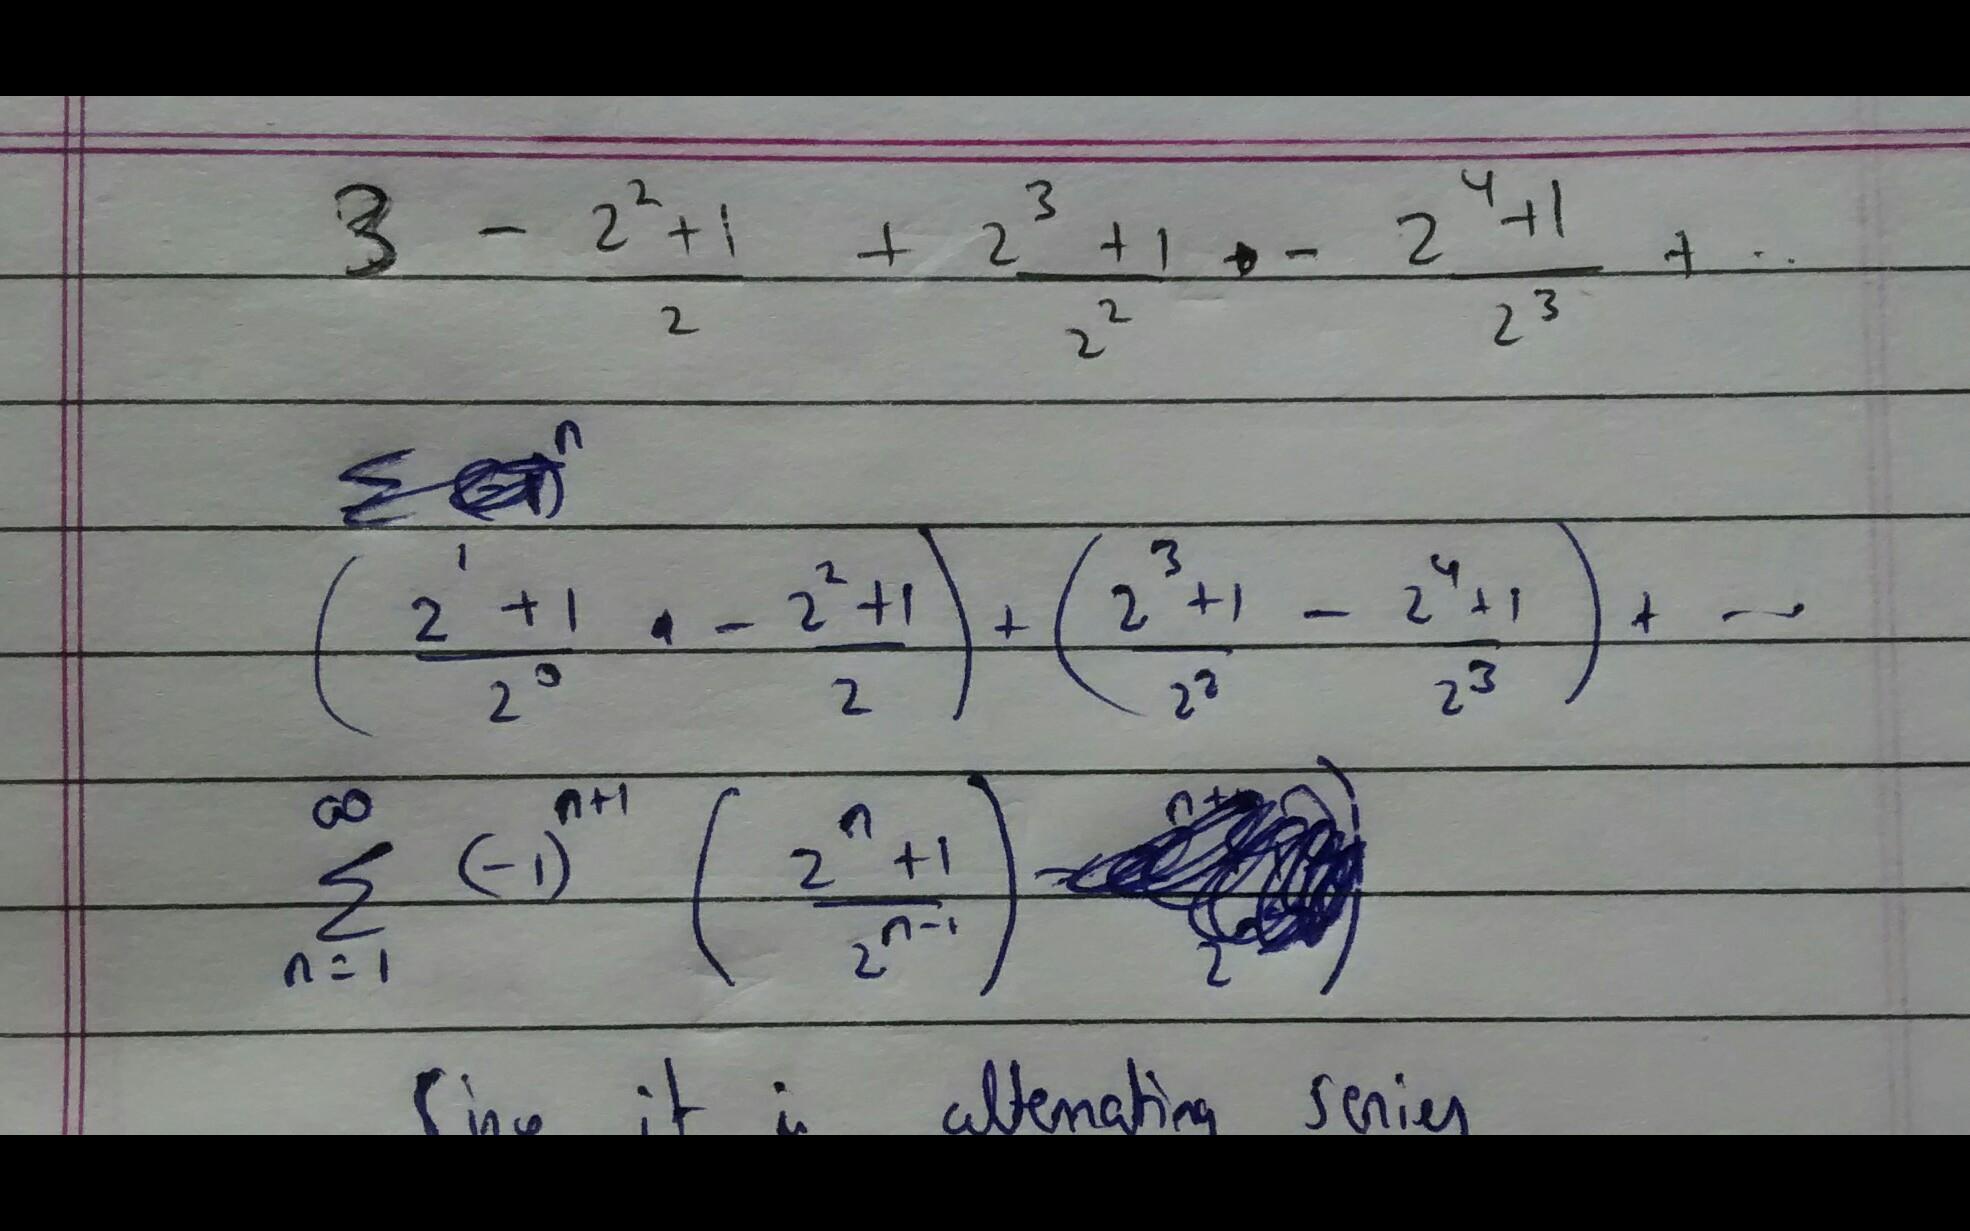 3 - (2^2+1)/2 + (2^3+1)/2^2 - (2^4+1)/2^3 + ..
Σ n
((2^1+1)/2^0 - (2^2+1)/2) + ((2^3+1)/2^2 - (2^4+1)/2^3) + ...
∞ Σ n=1 (-1)^(n+1) ((2^n+1)/2^(n-1))
Since it is alternating series